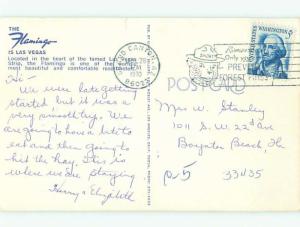 THE
Flamingo
IS LAS VEGAS
Located in the heart of the famed Las Vegas
Strip, the Flamingo is one of the
most beautiful and comfortable
Hi -
We were late getting
started, but it was a
very smooth trip. We
are going to have a bite to
eat and then going to
hit the hay. This is
where we are staying
Henry & Elizabeth
PM
1970
POSTCARD
Remember
Only you
PREVENT
FOREST FIRES
WASHINGTON
5¢
Mrs W. Stanley
1011 S. W. 22nd Ave
Boynton Beach, Fla
33435
p-5